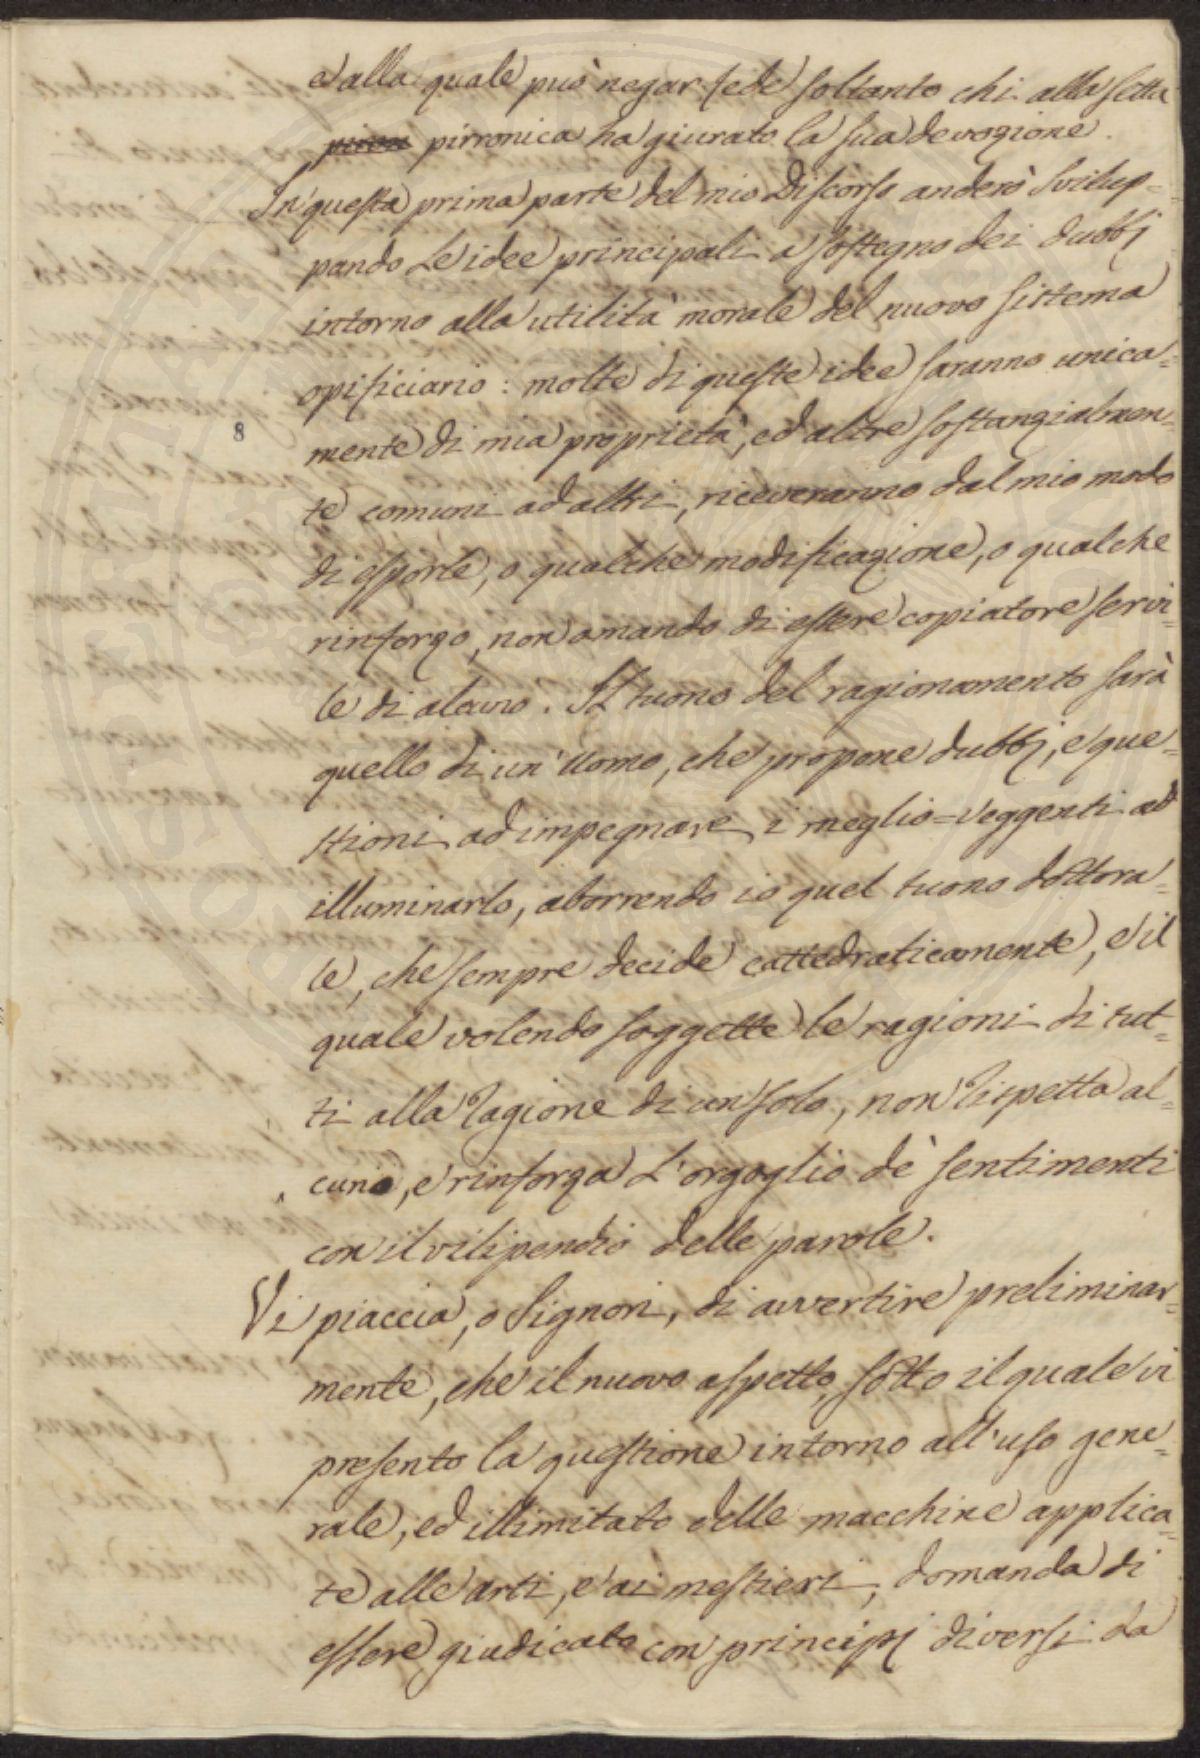 e alla quale può negar fede soltanto chi alla setta
pirron pirronica ha giurato la sua devozione.
In questa prima parte del mio Discorso anderò svilup-
pando le idee principali a sostegno dei dubbj
intorno alla utilità morale del nuovo sistema
opificiario: molte di queste idee saranno unica=
8
mente di mia proprietà, ed altre sostanzialmen-
te comuni ad altri, riceveranno dal mio modo
di esporle, o qualche modificazione, o qualche
rinforzo, non amando di essere copiatore servi-
le di alcuno. Il tuono del ragionamento sarà
quello di un'Uomo, che propone dubbj, e que=
stioni ad impegnare i meglio=veggenti ad
illuminarlo, aborrendo io quel tuono dottora=
le, che sempre decide cattedraticamente, e il
quale volendo soggette le ragioni di tut=
ti alla ragione di un solo, non rispetta al=
cuno, e rinforza l'orgoglio de' sentimenti
con il vilipendio delle parole.
Vi piaccia, o Signori, di avvertire preliminar=
mente, che il nuovo aspetto, sotto il quale vi
presento la questione intorno all'uso gene=
rale, ed illimitato delle macchine applica=
te alle arti, e ai mestieri, domanda di
essere giudicato con principj diversi da